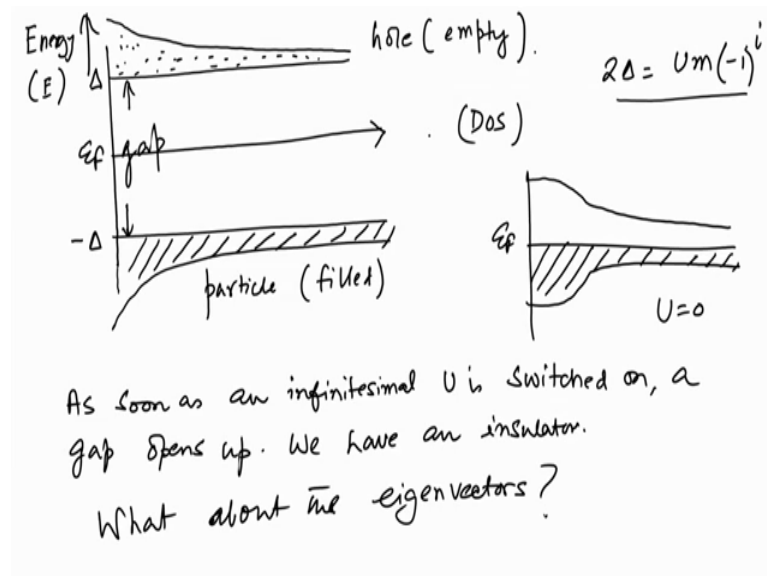 Energy
(E)
hole (empty).
2Δ = Um(-1)^i
Δ
(DOS)
εf
gap
-Δ
εf
particle (filled)
U=0
As soon as an infinitesimal U is switched on, a
gap opens up. We have an insulator.
What about the eigenvectors?